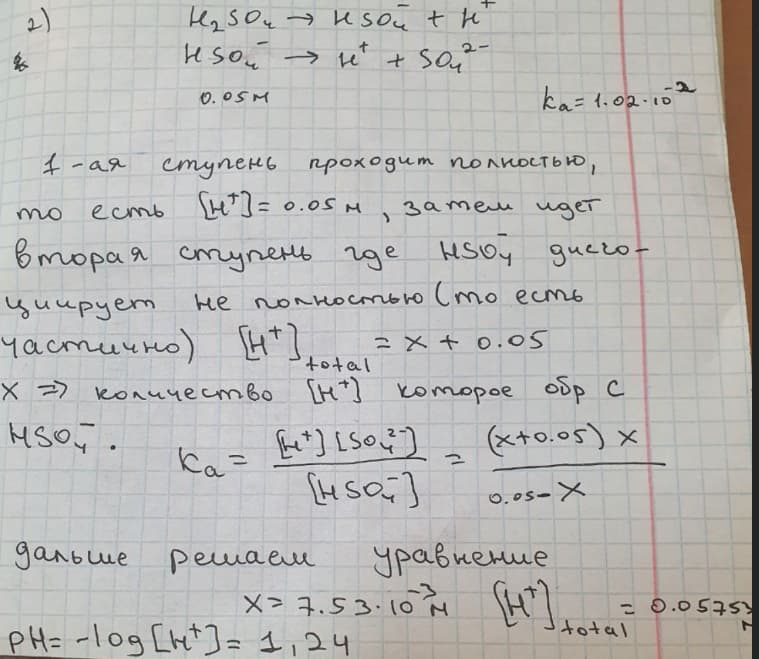 2) H₂SO₄ → HSO₄⁻ + H⁺
HSO₄⁻ → H⁺ + SO₄²⁻
0.05M ka = 1.02·10⁻²
1-ая ступень проходит полностью,
то есть [H⁺] = 0.05 M, затем идет
вторая ступень где HSO₄⁻ диссо-
циирует не полностью (то есть
частично) [H⁺]total = x + 0.05
x ⇒ количество [H⁺] которое обр с
HSO₄⁻. Ka = [H⁺][SO₄²⁻] / [HSO₄⁻] = (x+0.05) x / 0.05-x
дальше решаем уравнение
x = 7.53·10⁻³ M [H⁺]total = 0.05753 M
pH = -log[H⁺] = 1,24